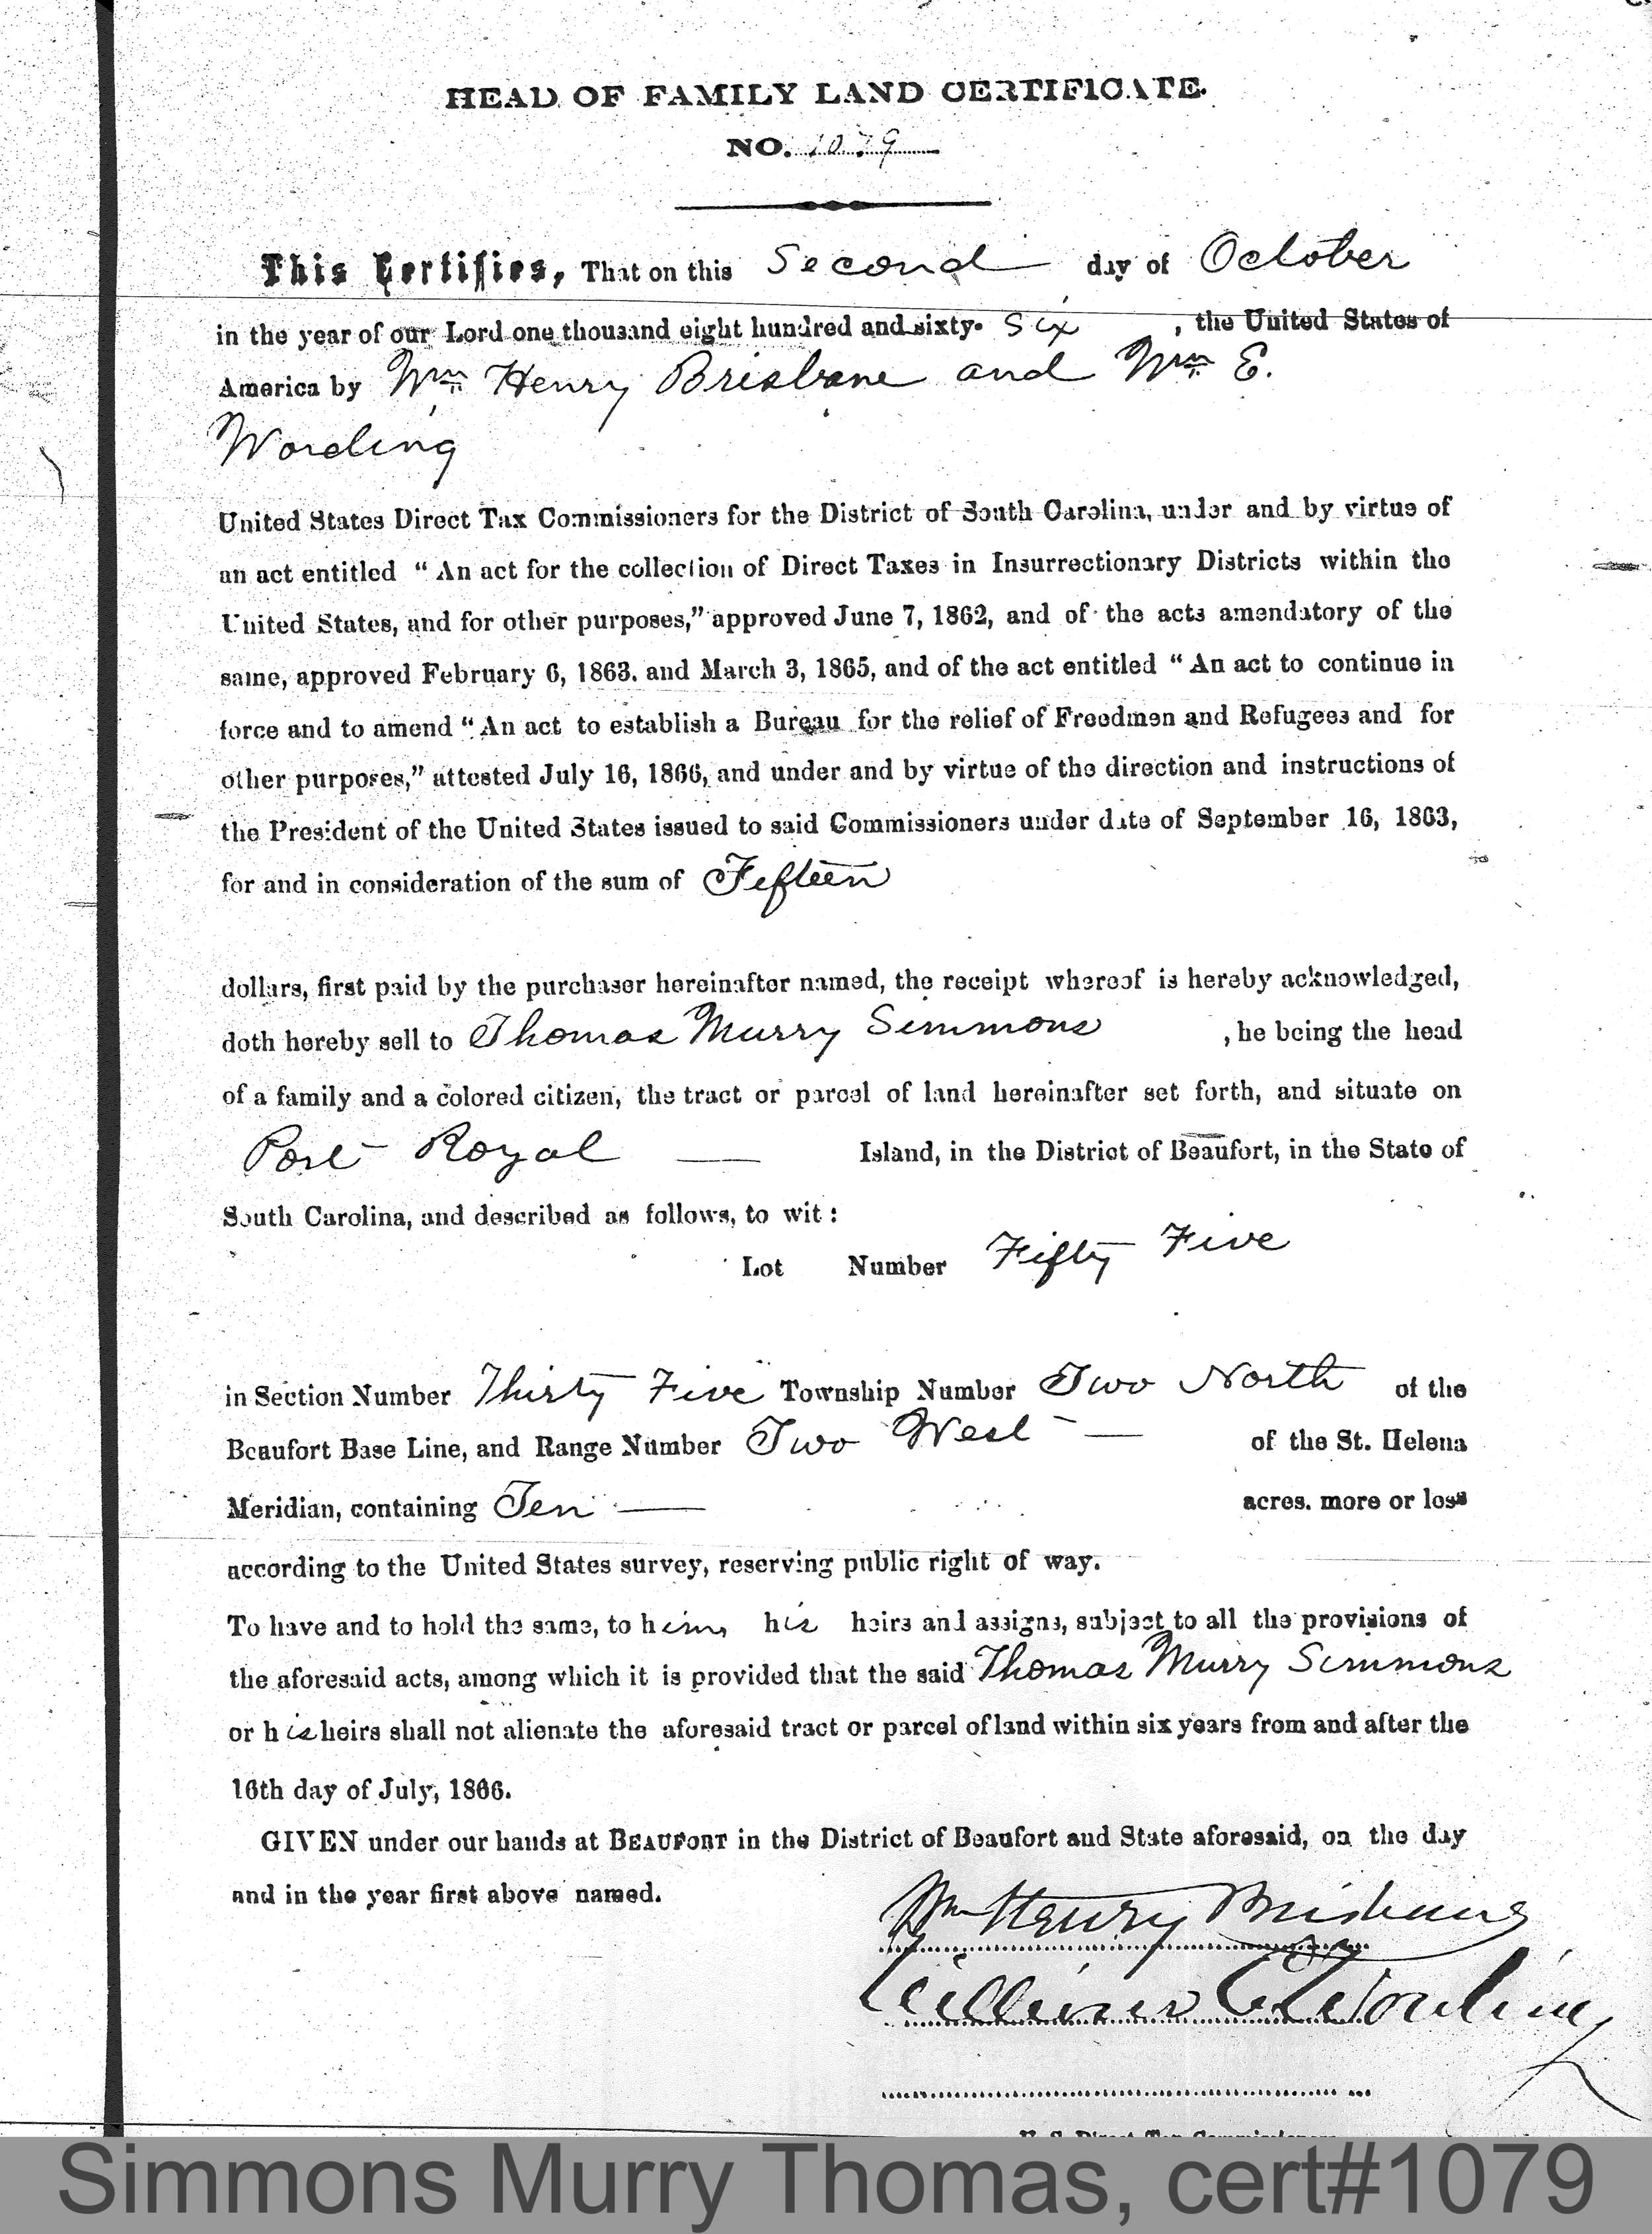 HEAD OF FAMILY LAND CERTIFICATE.
NO. 1079
This Certifies, That on this Second day of October
in the year of our Lord one thousand eight hundred and sixty- Six , the United States of
America by Wm Henry Brisbane and Wm E.
Wording
United States Direct Tax Commissioners for the District of South Carolina, under and by virtue of
an act entitled "An act for the collection of Direct Taxes in Insurrectionary Districts within the
United States, and for other purposes," approved June 7, 1862, and of the acts amendatory of the
same, approved February 6, 1863. and March 3, 1865, and of the act entitled "An act to continue in
force and to amend "An act to establish a Bureau for the relief of Freedmen and Refugees and for
other purposes," attested July 16, 1866, and under and by virtue of the direction and instructions of
the President of the United States issued to said Commissioners under date of September 16, 1863,
for and in consideration of the sum of Fifteen
dollars, first paid by the purchaser hereinafter named, the receipt whereof is hereby acknowledged,
doth hereby sell to Thomas Murry Simmons , he being the head
of a family and a colored citizen, the tract or parcel of land hereinafter set forth, and situate on
Port Royal — Island, in the District of Beaufort, in the State of
South Carolina, and described as follows, to wit:
Lot Number Fifty Five
in Section Number Thirty Five Township Number Two North of the
Beaufort Base Line, and Range Number Two West — of the St. Helena
Meridian, containing Ten — acres. more or less
according to the United States survey, reserving public right of way.
To have and to hold the same, to him, his heirs and assigns, subject to all the provisions of
the aforesaid acts, among which it is provided that the said Thomas Murry Simmons
or his heirs shall not alienate the aforesaid tract or parcel of land within six years from and after the
16th day of July, 1866.
GIVEN under our hands at BEAUFORT in the District of Beaufort and State aforesaid, on the day
and in the year first above named.
Wm Henry Brisbane
William E Wording
U. S. Direct Tax Commissioners
Simmons Murry Thomas, cert#1079